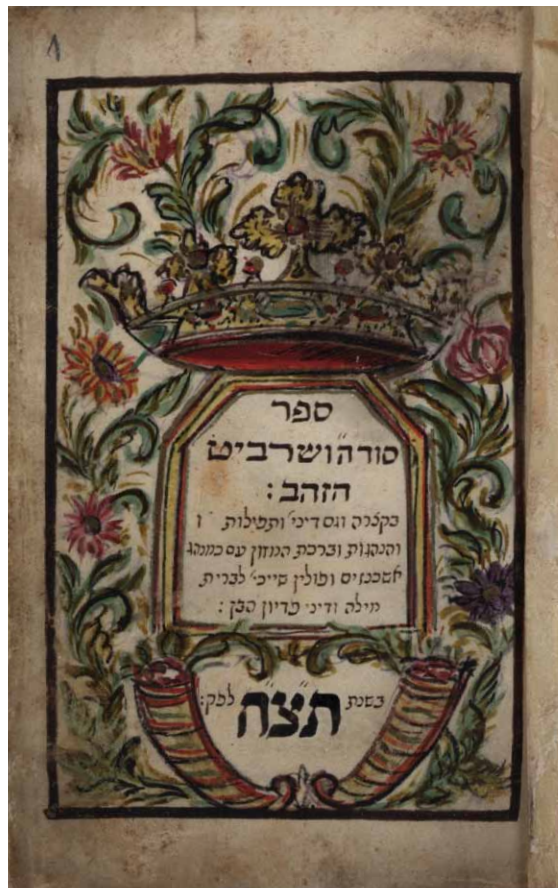 1
ספר
סוד ה" ושרביט
הזהב :
בקצרה וגם דיני' ותפילות
והנהגות וברכת המזון עם כמנהג
אשכנזים ופולין שייכי' לברית
מילה ודיני פדיון הבן :
בשנת ת"צ"ח לפק :